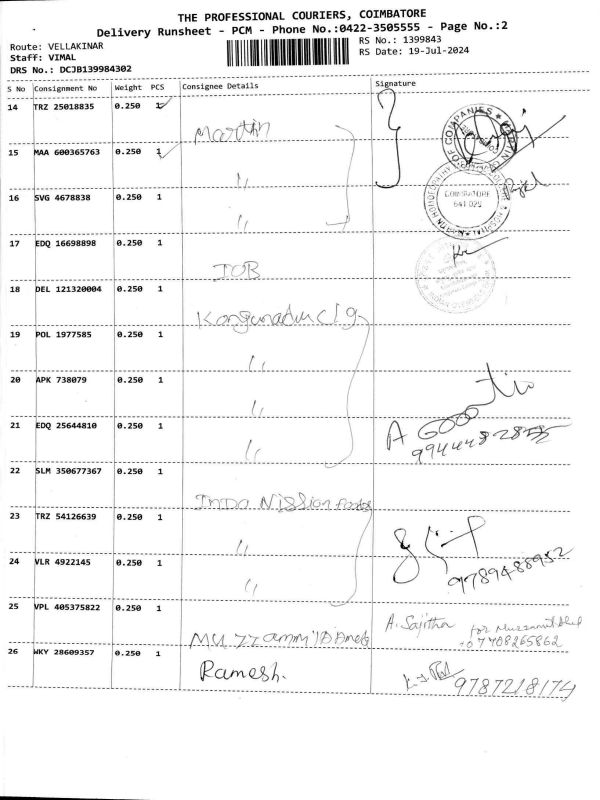 THE PROFESSIONAL COURIERS, COIMBATORE
Delivery Runsheet - PCM - Phone No.:0422-3505555 - Page No.:2
Route: VELLAKINAR
Staff: VIMAL
DRS No.: DCJB139984302
RS No.: 1399843
RS Date: 19-Jul-2024
S No Consignment No Weight PCS Consignee Details Signature
14 TRZ 25018835 0.250 1 Martin
15 MAA 600365763 0.250 1 "
16 SVG 4678838 0.250 1 "
COIMBATORE
641 029
17 EDQ 16698898 0.250 1 IOB
18 DEL 121320004 0.250 1 Kongunadu clg
19 POL 1977585 0.250 1 "
20 APK 738079 0.250 1 "
21 EDQ 25644810 0.250 1 "
22 SLM 350677367 0.250 1 Indo Nission foods
23 TRZ 54126639 0.250 1 "
24 VLR 4922145 0.250 1 "
9789488952
25 VPL 405375822 0.250 1 A. Sajitha for
7708265862
26 WKY 28609357 0.250 1 Ramesh. 9787218174